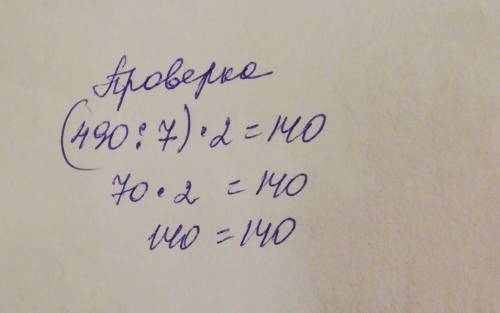 Проверка
(490 : 7) · 2 = 140
70 · 2 = 140
140 = 140